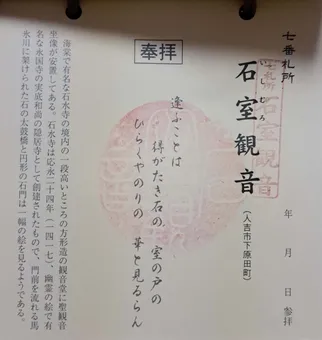 七番札所
石室観音
しむろ
(人吉市下原田町)
石室観音
年 月 日 参拝
奉拝
逢ふことは
得がたき石の 室の戸の
ひらくやのりの 華と見るらん
海棠で有名な石水寺の境内の一段高いところの方形造の観音堂に聖観音
坐像が安置してある。石水寺は応永二十四年(一四一七)、幽霊の絵で有
名な永国寺の実底和尚の隠居寺として創建されたもので、門前を流れる馬
氷川に架けられた石の太鼓橋と円形の石門は一幅の絵を見るようである。